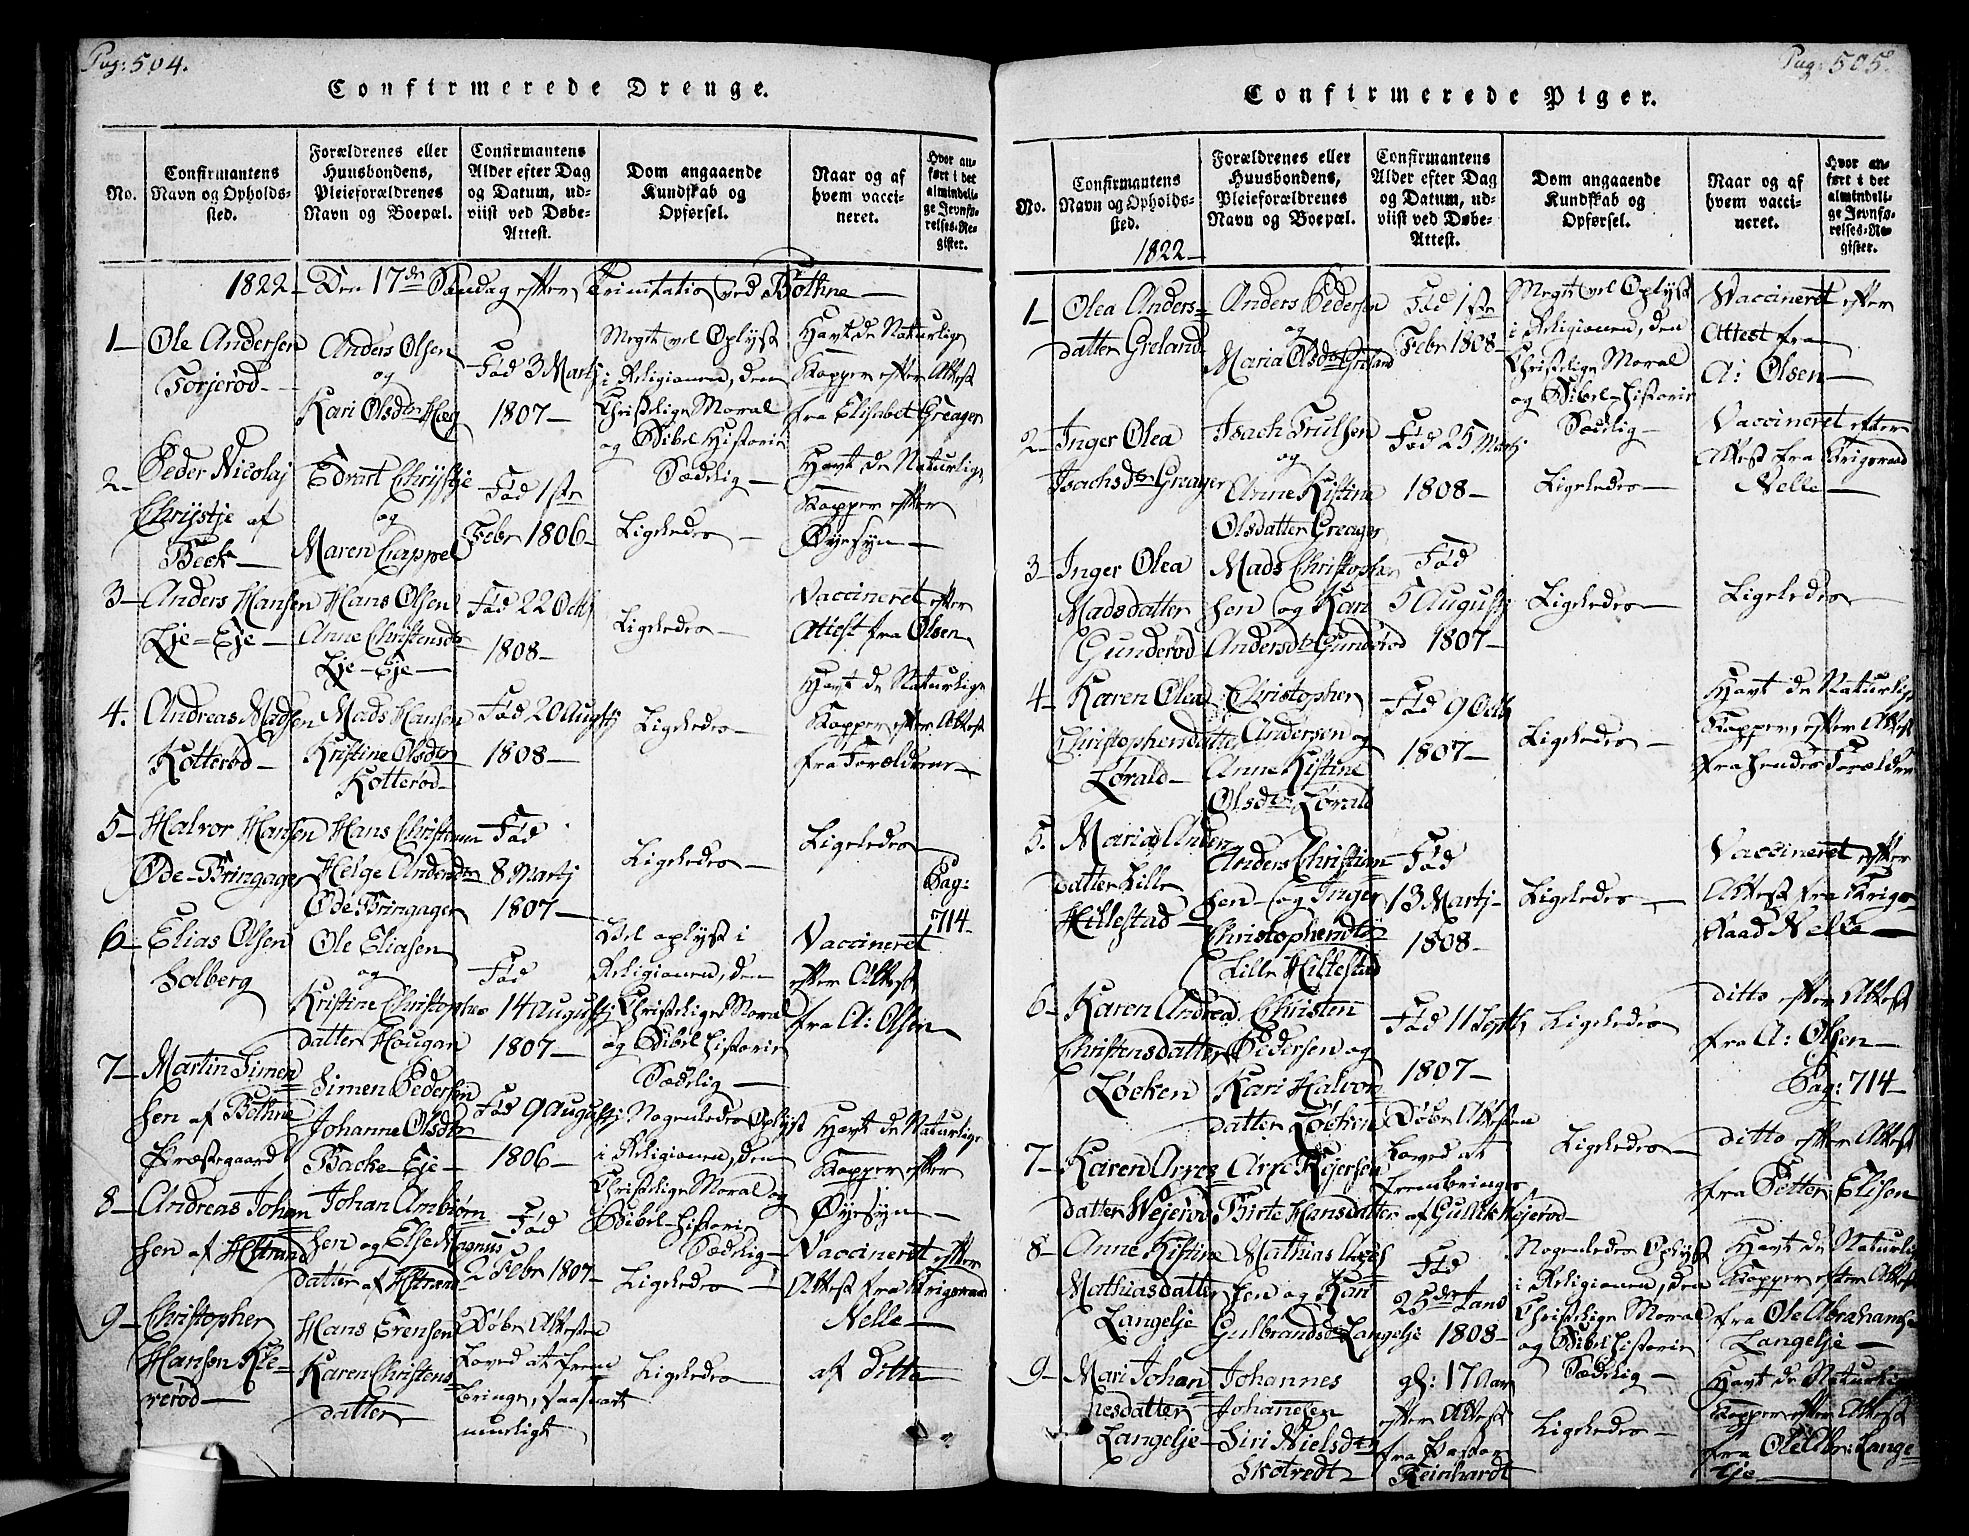 Pag: 504.
Confirmerede Drenge.
No.
Confirmantens Navn og Opholds-sted.
Forældrenes eller Huusbondens, Pleieforældrenes Navn og Boepæl.
Confirmantens Alder efter Dag og Datum, ud-viist ved Døbe-Attest.
Dom angaaende Kundskab og Opførsel.
Naar og af hvem vacci-neret.
Hvor an-ført i det almindeli-ge Jevnfø-relses-Re-gister.
1822 – Den 17de Søndag efter Trinitatis ved Bothne –
1 – Ole Andersen Torjerød –
Anders Olsen og Kari Olsdtr Hæg
Fød 3 Martj 1807 –
Meget vel Oplyst i Religionen, den Christelige Moral og Bibel Historie Sædelig –
Havt de Naturlige Kopper efter Attest fra Elisabet Greager
2 – Peder Nicolaj Chrystje af Beck –
Edvart Chrystje og Maren Cappel
Fød 1ste Febr 1806 –
Ligeledes –
Havt de Naturlige Kopper efter Øyesyn –
3 – Anders Hansen Lje-Eje –
Hans Olsen Anne Christensdtr Lje-Eje –
Fød 22 Octb 1808 –
Ligeledes –
Vaccineret efter Attest fra Olsen
4. Andreas Madsen Kotterød –
Mads Hansen Kristine Olsdtr Kotterød –
Fød 20 Augustj 1808 –
Ligeledes –
Havt de Naturlige Kopper efter Attest fra Forældrene –
5 – Halvor Hansen Øde-Bringager
Hans Christensen Helge Andersdtr Øde Bringager
Fød 8 Martj 1807 –
Ligeledes –
Ligeledes –
Pag: 714 –
6 – Elias Olsen Solberg
Ole Eliasen og Kristine Christophersdatter Haugan
Fød 14 Augustj 1807 –
Vel oplyst i Religionen, den Christelige Moral og Bibel historie Sædelig –
Vaccineret efter Attest fra A: Olsen
7 – Martin Simensen af Bothne Præstegaard
Simen Pedersen Johanne Olsdtr Backe-Eje –
Fød 9 Augustj 1806 –
Nogenledes Oplyst i Religionen, den Christelige Moral og Bibel-historie Sædelig –
Havt de Naturlige Kopper efter Øyesyn –
8 – Andreas Johansen af
Johan Ambiørnsen og Else Magnusdatter af
Fød 2 Febr 1807 –
Ligeledes –
Vaccineret efter Attest fra Krigsraad Nelle –
9 – Christopher Hansen Kleverød –
Hans Erensen Karen Christensdatter
Døbe Attesten Loved at frembringe, saasnart mueligt
Ligeledes –
af Ditto
Pag: 505.
Confirmerede Piger.
No.
Confirmantens Navn og Opholds-sted.
1822 –
Forældrenes eller Huusbondens, Pleieforældrenes Navn og Boepæl.
Confirmantens Alder efter Dag og Datum, ud-viist ved Døbe-Attest.
Dom angaaende Kundskab og Opførsel.
Naar og af hvem vacci-neret.
Hvor an-ført i det almindeli-ge Jevnfø-relses-Re-gister.
1 – Olea Andersdatter Greland
Anders Pedersen og Maria Olsdtr Greland
Fød 1ste Febr 1808 –
Meget vel Oplyst i Religionen, den Christelige Moral og Bibel-historie Sædelig –
Vaccineret efter Attest fra A: Olsen –
2 – Inger Olea Isachsdtr Greager
Isach Trulsen og Anne Kistine Olsdatter Greager
Fød 25 Martj 1808 –
Ligeledes –
Vaccineret efter Attest fra Krigsraad Nelle –
3 – Inger Olea Madsdatter Gunderød
Mads Christophersen og Kari Andersdtr Gunderød
Fød 5 Augustj 1807 –
Ligeledes –
Ligeledes –
4 – Karen Olea Christophersdatter Lørald –
Christopher Anderson og Anne Kistine Olsdtr Lørald
Fød 9 Octb 1807 –
Ligeledes –
Havt de Naturlige Kopper, efter Attest fra hendes Forældre
5. Maria Andersdatter Lille Hillestad
Anders Christiansen – og Inger Christophersdtr Lille Hillestad
Fød 13 Martj – 1808 –
Ligeledes –
Vaccineret efter Attest fra Krigsraad Nelle –
6 – Karen Andrea Christensdatter Løcken
Christen Pedersen og Kari Halvorsdatter Løcken
Fød 11 Septb 1807 –
Ligeledes
ditto efter Attest fra A: Olsen –
Pag: 714 –
7 – Karen Arnesdatter Wejerød
Arne Rejersen Birte Hansdatter
Døbe Attesten Loved at frembringes af Gullik Wejerød –
Ligeledes –
ditto efter Attest fra Petter Elisen
8 – Anne Kistine Mathiasdatter Langelje
Mathias Andersen og Kari Gulbrandsd Langelje
Fød 25de Jans 1808 –
Nogenledes Oplyst i Religionen, den Christelige Moral og Bibel historie Sædelig –
Havt de Naturlige Kopper efter Attest fra Ole Abrahamsen Langelje –
9 – Mari Johannesdatter Langelje –
Johannes Johannesen Siri Nielsdtr Skotredt –
gl: 17 Aar efter Attest fra Pastor Reinhardt
Ligeledes –
Havt de Naturlige Kopper efter Attest fra Ole Abr: Langelje –